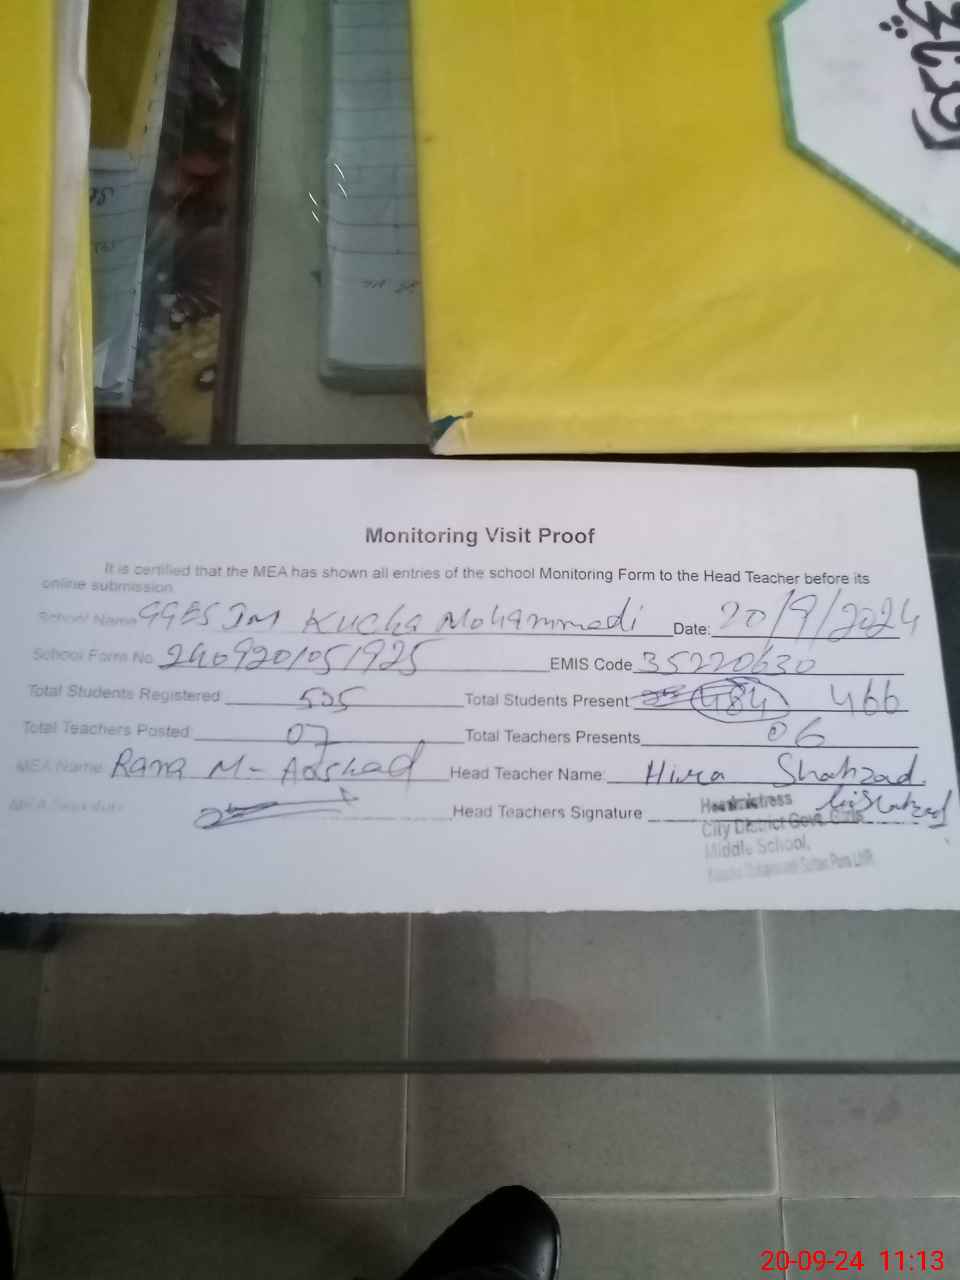 Monitoring Visit Proof
It is certified that the MEA has shown all entries of the school Monitoring Form to the Head Teacher before its
online submission
School Name GGES JM Kucha Mohammadi Date: 20/9/2024
School Form No. 2409201051925 EMIS Code 35220630
Total Students Registered 505 Total Students Present 484 466
Total Teachers Posted 07 Total Teachers Presents 06
MEA Name Rana M- Aashad Head Teacher Name: Hira Shahzad
MEA Signature Head Teachers Signature
Headmistress
City District Govt. Girls
Middle School,
20-09-24 11:13